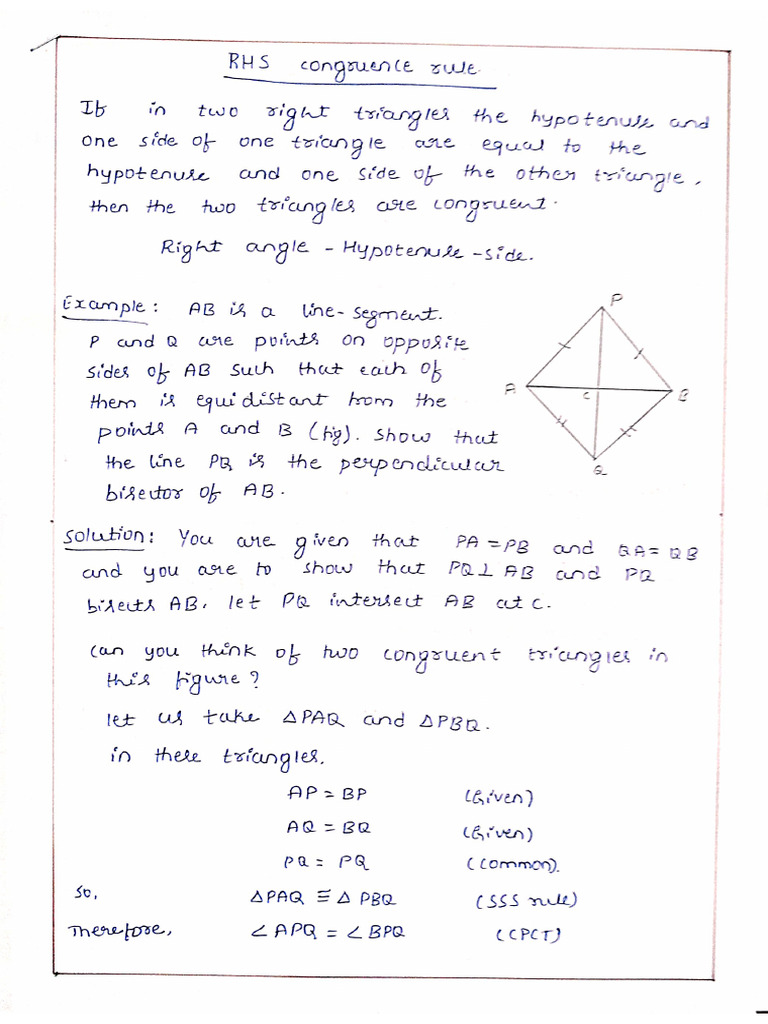 RHS congruence rule.
If in two right triangles the hypotenuse and
one side of one triangle are equal to the
hypotenuse and one side of the other triangle,
then the two triangles are congruent.
Right angle - Hypotenuse - side.
Example: AB is a line-segment.
P and Q are points on opposite
sides of AB such that each of
them is equidistant from the
points A and B (fig). Show that
the line PQ is the perpendicular
bisector of AB.
P
A
C
B
Q
Solution: You are given that PA = PB and QA = QB
and you are to show that PQ ⊥ AB and PQ
bisects AB. let PQ intersect AB at C.
Can you think of two congruent triangles in
this figure?
let us take △PAQ and △PBQ.
in these triangles,
AP = BP (Given)
AQ = BQ (Given)
PQ = PQ (Common).
So, △PAQ ≅ △PBQ (SSS rule)
Therefore, ∠APQ = ∠BPQ (CPCT)